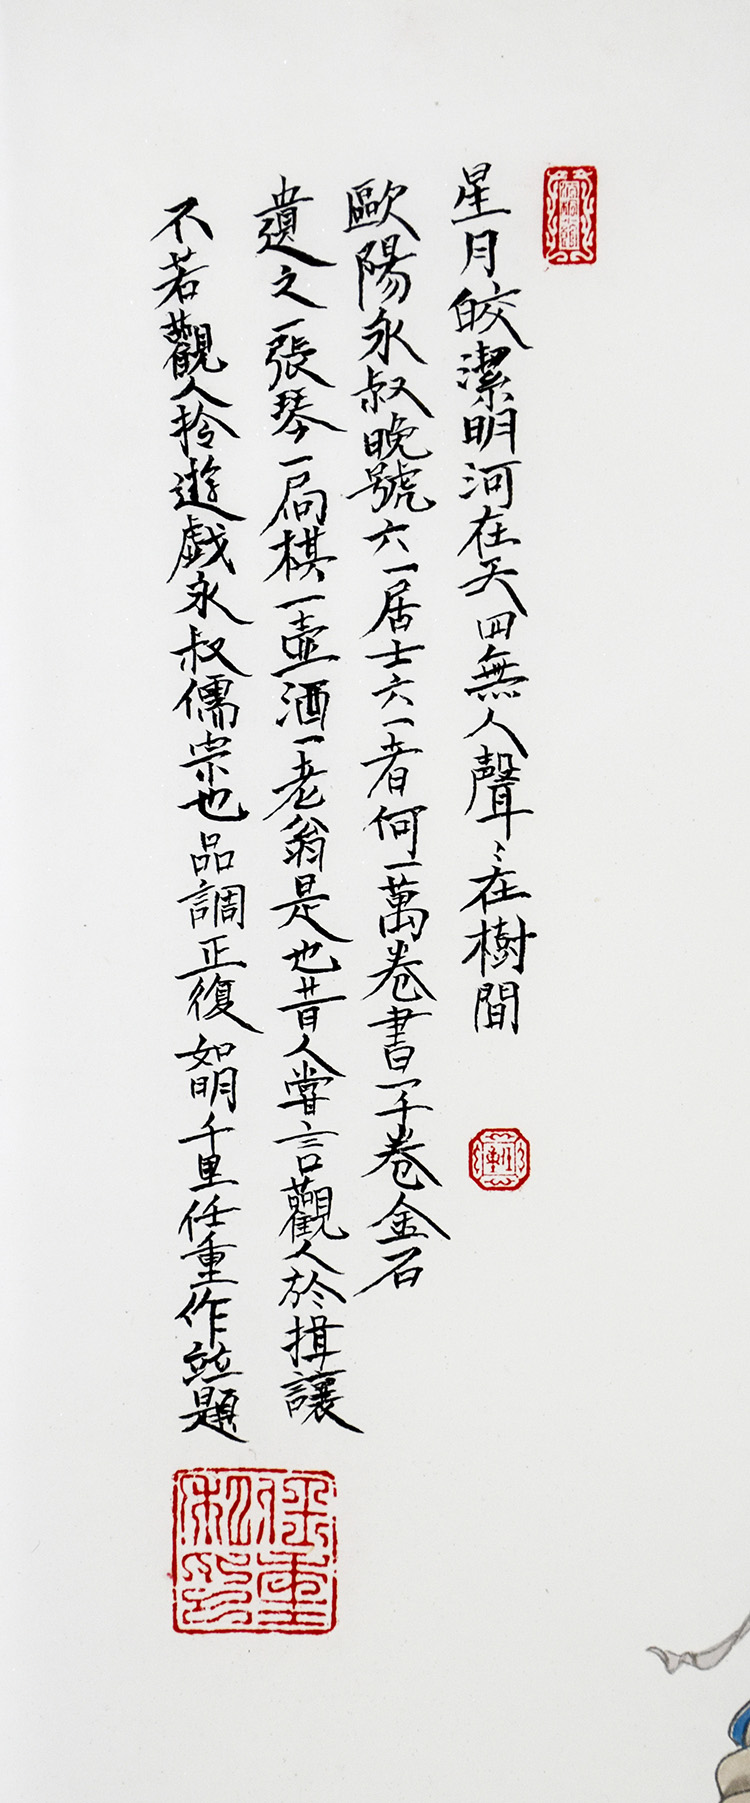 星月皎潔明河在天四無人聲〻在樹間
歐陽永叔晚號六一居士六一者何一萬卷書一千卷金石
遺之一張琴一局棋一壺酒一老翁是也昔人嘗言觀人於揖讓
不若觀人拎遊戲永叔儒宗也品調正復如明千里任重作並題
任重私印